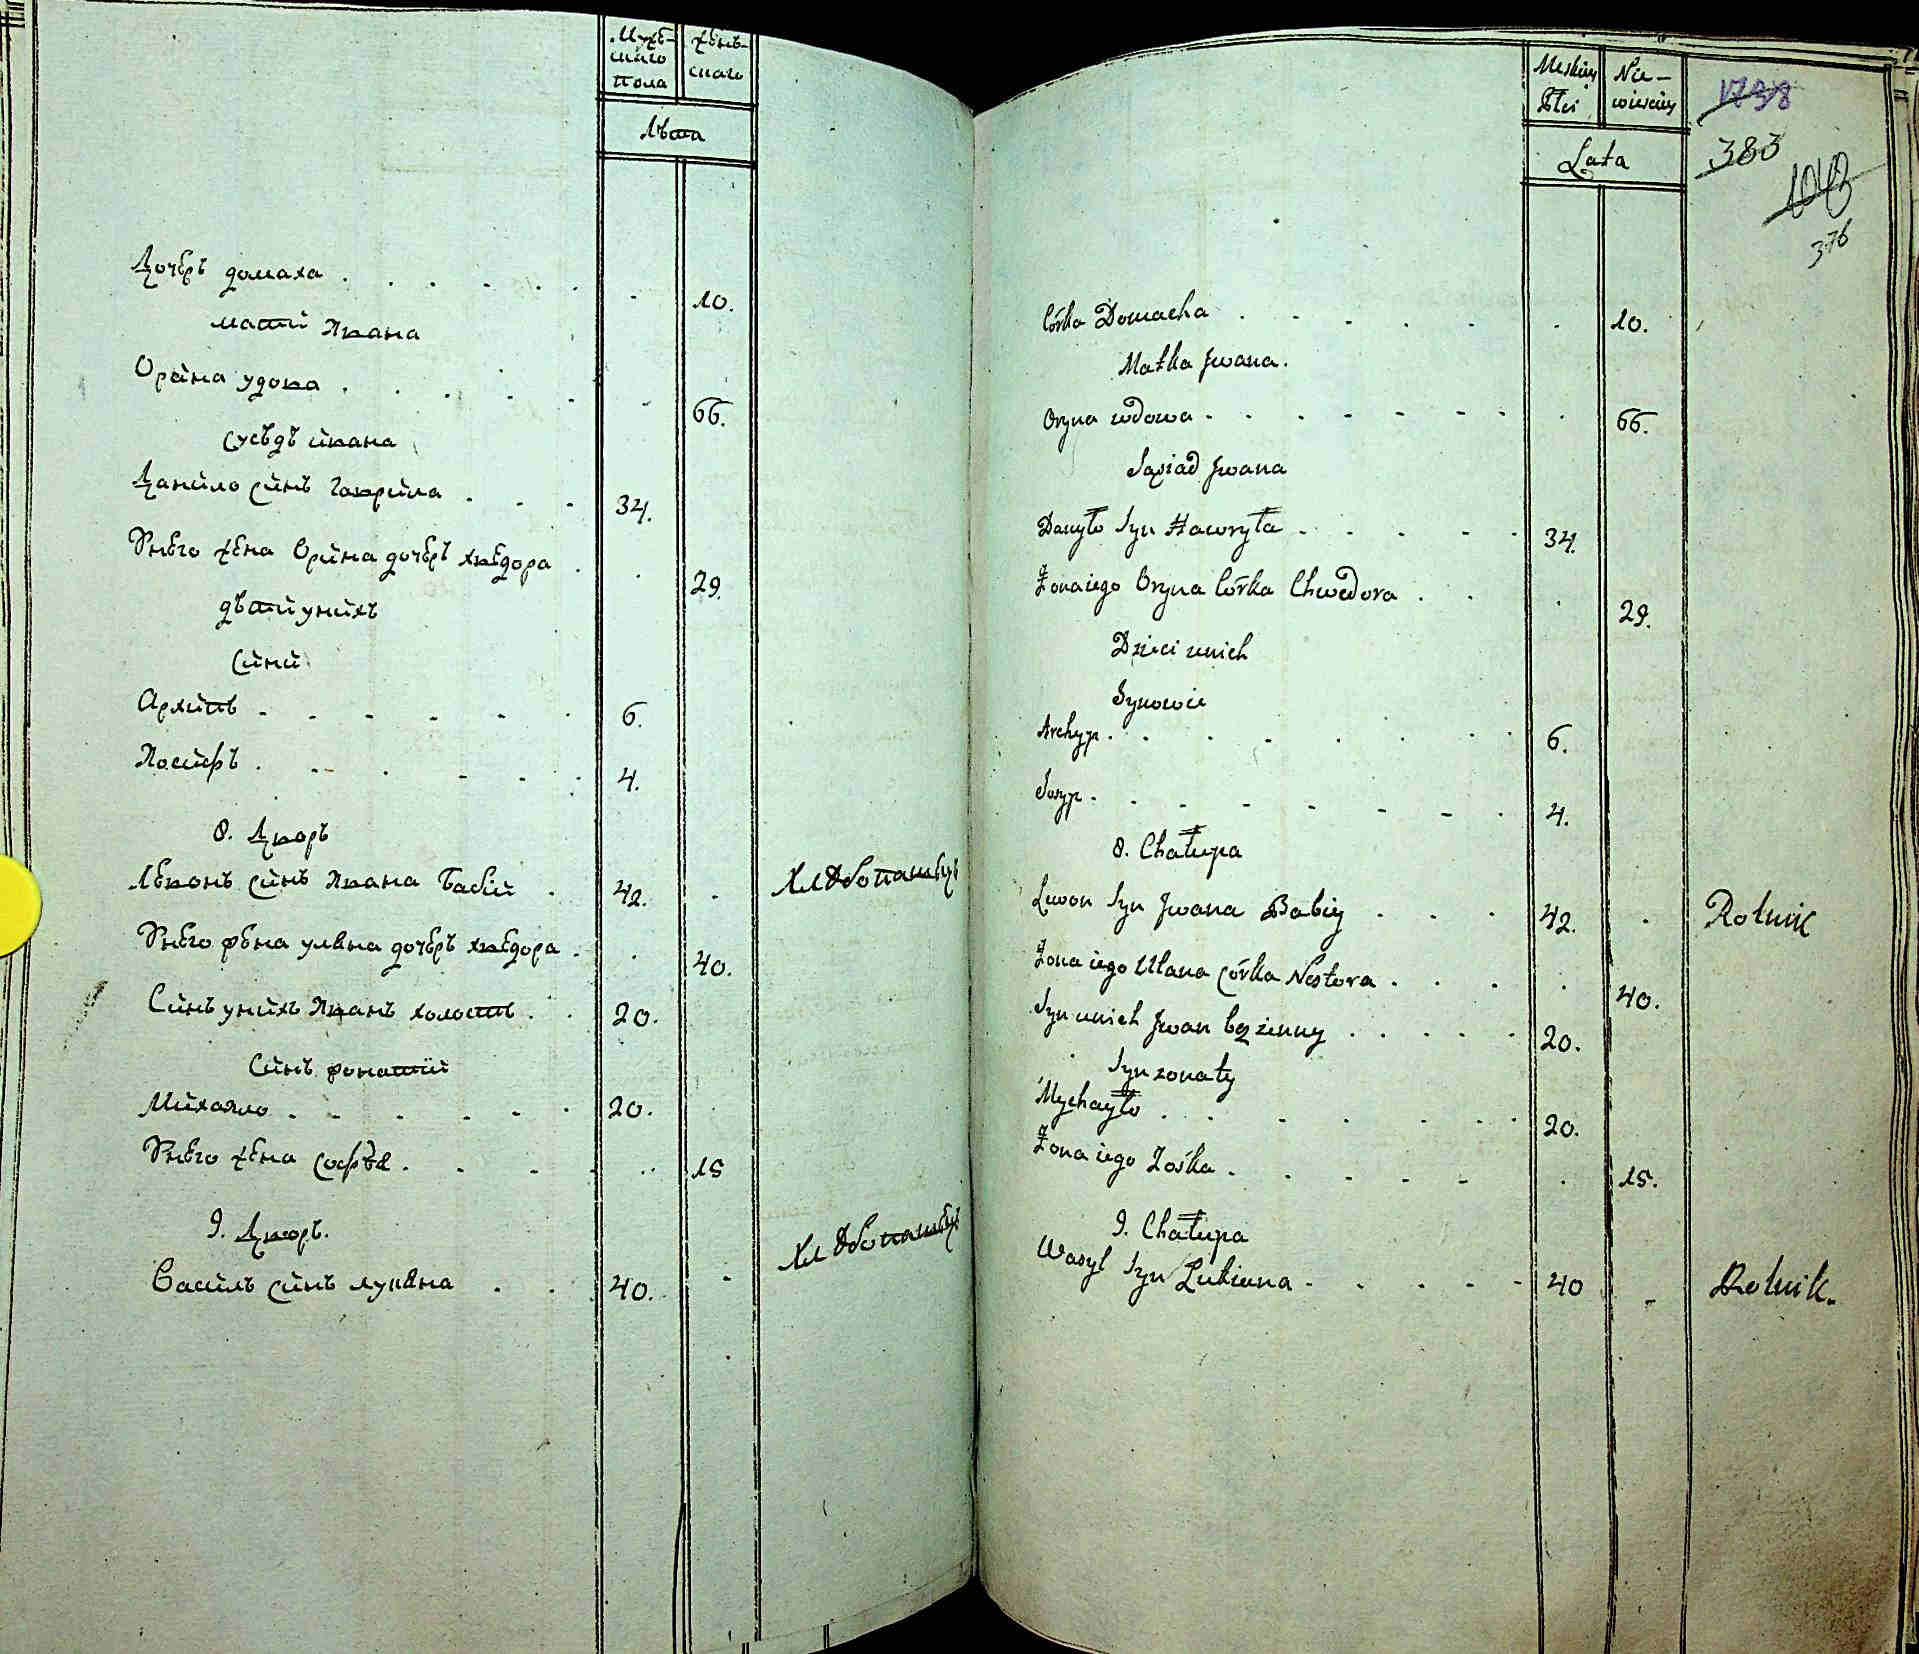 Муже-
скаго
пола
жень-
скаго
лѣта
Дочерь домаха . . . . . . 10.
мати Ивана
Орина удова . . . . . 66.
сусѣдъ ивана
Данило синъ Гаврила . . . 34.
У него жена Орина дочерь хведора . . 29.
дѣти у нихъ
Сини
Архипъ . . . . . . 6.
Иосифъ . . . . . . 4.
8. Дворъ
Левонъ синъ Ивана Бабий . 42. . Хлѣбопашецъ
У него жена уляна дочерь хведора . . 40.
Синъ у нихъ Иванъ холостъ . . 20.
Синъ жонатий
Михаяло . . . . . . 20.
У него жена софѣя . . . . . 15
9. Дворъ.
Василь синъ лукяна . . 40. . Хлѣбопашецъ
Męskiey
Płci
Nie-
wieściey
Lata
1738
383
1043
376
Córka Domacha . . . . . . 10.
Matka Jwana.
Oryna wdowa . . . . . . . 66.
Sąsiad Jwana
Danyło Syn Hawryła . . . . . 34.
Żona iego Oryna Córka Chwedora . . . 29.
Dzieci u nich
Synowie
Archyp . . . . . . . 6.
Josyp . . . . . . . 4.
8. Chałupa
Lewon Syn Jwana Babiy . . . 42. . Rolnik
Żona iego Ulana Córka Nestora . . . . 40.
Syn u nich Jwan bezżenny . . . . . 20.
Syn zonaty
Mychayło . . . . . . 20.
Żona iego Zośka . . . . . . 15.
9. Chałupa
Wasyl Syn Lukiana . . . . . 40 . Rolnik.